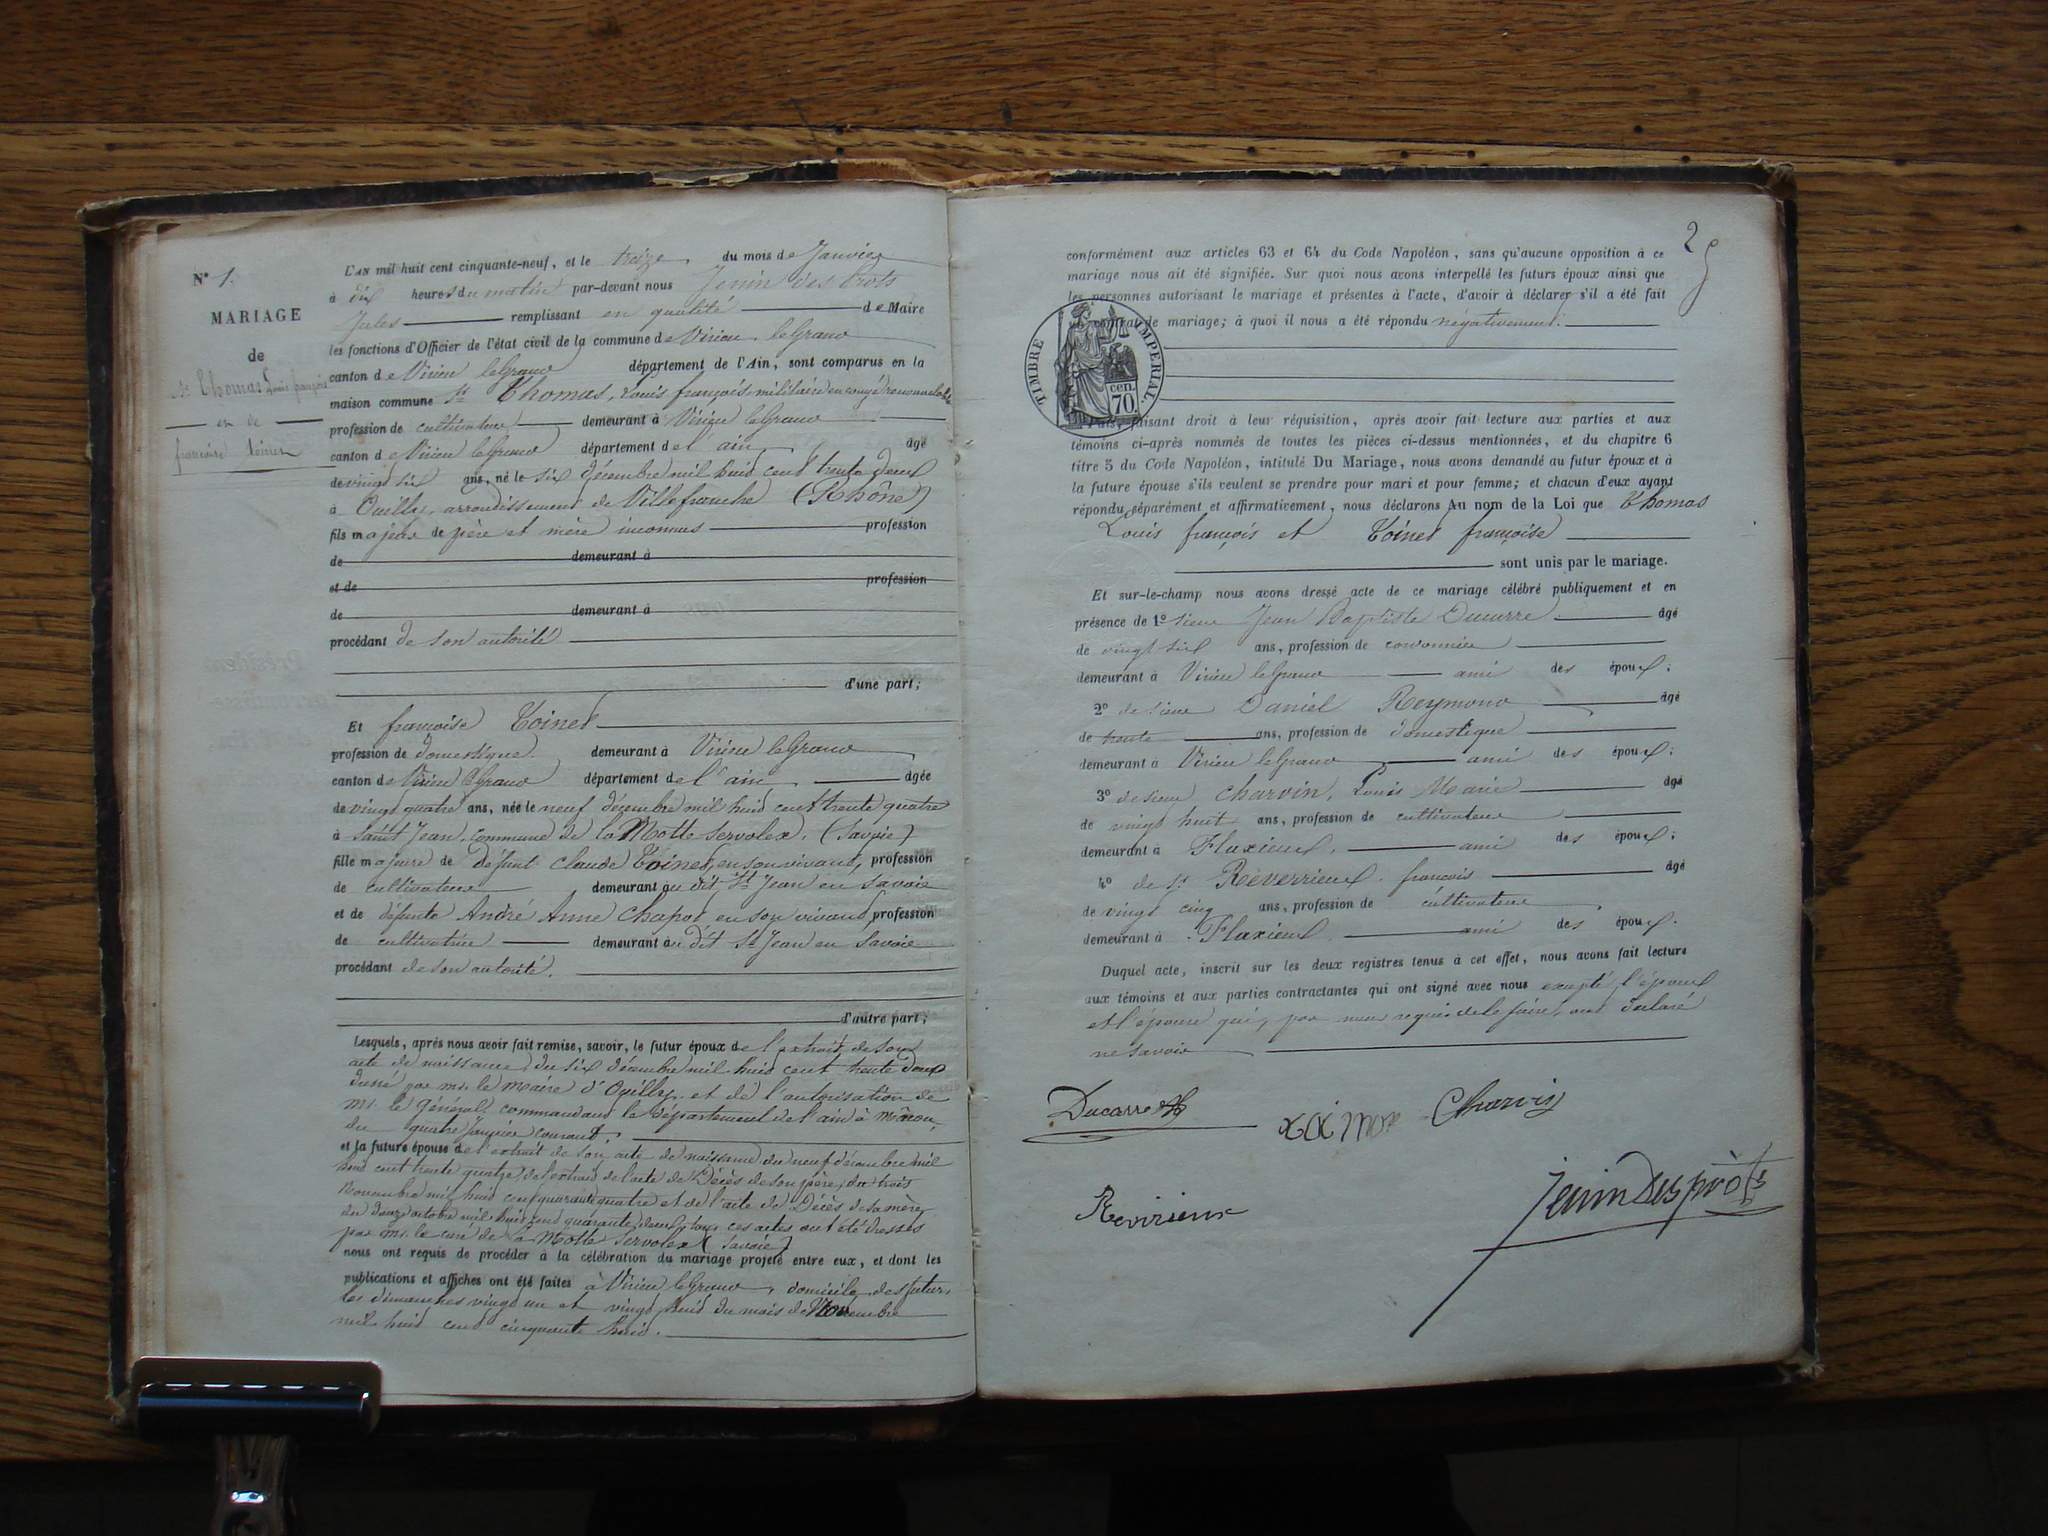 N° 1.
MARIAGE
de
Sr Thomas Louis françois
et de
françoise Toinet
L'AN mil huit cent cinquante-neuf, et le treize du mois de Janvier
à dix heures du matin par-devant nous Jenin des Prots
Jules remplissant en qualité de Maire
les fonctions d'Officier de l'état civil de la commune de Virieu leGrand
canton de Virieu leGrand département de l'Ain, sont comparus en la
maison commune Sr Thomas, Louis françois, militaire en congé renouvelable
profession de cultivateur demeurant à Virieu leGrand
canton de Virieu leGrand département de l'ain âgé
de vingt six ans, né le six décembre mil huit cent trente deux
à Ouilly, arrondissement de Villefranche (Rhône)
fils majeur de père et mère inconnus profession
de demeurant à
et de profession
de demeurant à
procédant de son autorité
d'une part;
Et françoise Toinet
profession de domestique demeurant à Virieu leGrand
canton de Virieu leGrand département de l'ain âgée
de vingt quatre ans, née le neuf décembre mil huit cent trente quatre
à Saint Jean, commune de la Motte Servolex, (Savoie)
fille majeure de défunt Claude Toinet, en son vivant, profession
de cultivateur demeurant au dit St Jean en Savoie
et de défunte André Anne Chapot en son vivant, profession
de cultivatrice demeurant au dit St Jean en Savoie
procédant de son autorité.
d'autre part;
Lesquels, après nous avoir fait remise, savoir, le futur époux de l'extrait de son
acte de naissance, du six décembre mil huit cent trente deux
par mr. le maire d'Ouilly, et de l'autorisation de
Mr. le Général commandant le département de l'ain à
du quatre janvier courant,
et la future épouse de l'extrait de son acte de naissance du neuf décembre mil
huit cent trente quatre, de l'extrait de l'acte de Décès de son père, du trois
Novembre mil huit cent quarante quatre et de l'acte de Décès de sa mère,
du douze octobre mil huit cent quarante deux, tous ces actes ont été dressés
par mr. le curé de la Motte Servolex (Savoie)
nous ont requis de procéder à la célébration du mariage projeté entre eux, et dont les
publications et affiches ont été faites à Virieu leGrand, domicile des futurs,
les dimanches vingt un et vingt huit du mois de Novembre
mil huit cent cinquante huit.
2
conformément aux articles 63 et 64 du Code Napoléon, sans qu'aucune opposition à ce
mariage nous ait été signifiée. Sur quoi nous avons interpellé les futurs époux ainsi que
les personnes autorisant le mariage et présentes à l'acte, d'avoir à déclarer s'il a été fait
contrat de mariage; à quoi il nous a été répondu négativement.
TIMBRE IMPERIAL
70 cen.
Puis, faisant droit à leur réquisition, après avoir fait lecture aux parties et aux
témoins ci-après nommés de toutes les pièces ci-dessus mentionnées, et du chapitre 6
titre 5 du Code Napoléon, intitulé Du Mariage, nous avons demandé au futur époux et à
la future épouse s'ils veulent se prendre pour mari et pour femme; et chacun d'eux ayant
répondu séparément et affirmativement, nous déclarons Au nom de la Loi que Thomas
Louis françois et Toinet françoise
sont unis par le mariage.
Et sur-le-champ nous avons dressé acte de ce mariage célébré publiquement et en
présence de 1° sieur Jean Baptiste Ducarre âgé
de vingt six ans, profession de cordonnier
demeurant à Virieu leGrand ami des époux;
2° de sieur Daniel Reymond âgé
de trente ans, profession de domestique
demeurant à Virieu leGrand ami des époux;
3° de sieur Charvin, Louis Marie âgé
de vingt huit ans, profession de cultivateur
demeurant à Flaxieux, ami des époux;
4° de Sr Reverrieux françois âgé
de vingt cinq ans, profession de cultivateur
demeurant à Flaxieux ami des époux.
Duquel acte, inscrit sur les deux registres tenus à cet effet, nous avons fait lecture
aux témoins et aux parties contractantes qui ont signé avec nous excepté l'époux
et l'épouse qui, par nous requis de le faire, ont déclaré
ne savoir
Ducarre Charvin
Revirieux
Jenin Des prots